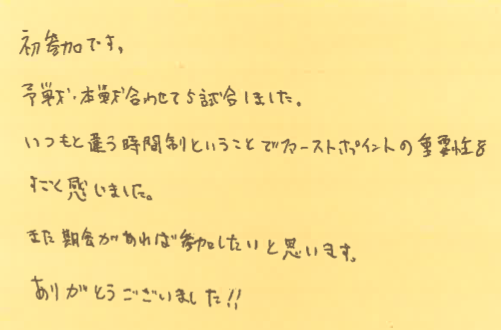 初参加です。
予戦・本戦合わせて5試合しました。
いつもと違う時間制ということでファーストポイントの重要性を
すごく感じました。
また機会があれば参加したいと思います。
ありがとうございました!!